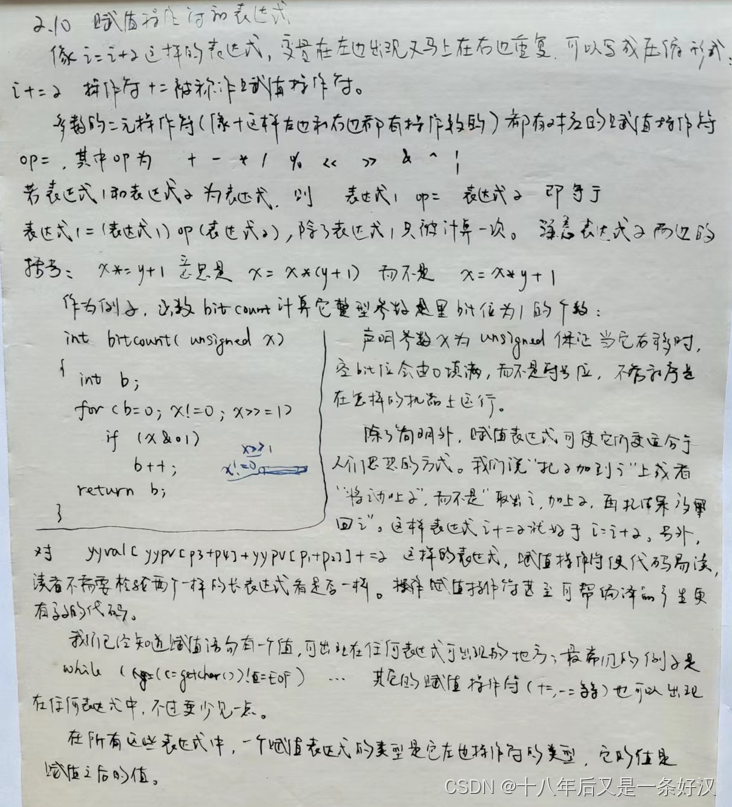 2.10 赋值操作符和表达式
像i=i+2这样的表达式,变量在左边出现又马上在右边重复,可以写成压缩形式:
i+=2 操作符+=被称作赋值操作符。
多数的二元操作符(像+这样左边和右边都有操作数的)都有对应的赋值操作符
op=,其中op为 + - * / % << >> & ^ |
若表达式1和表达式2为表达式,则 表达式1 op= 表达式2 即等于
表达式1=(表达式1)op(表达式2),除了表达式1只被计算一次。注意表达式2两边的
括号: x*=y+1 意思是 x=x*(y+1) 而不是 x=x*y+1
作为例子,函数bitcount计算它整型参数是里bit位为1的个数:
int bitcount(unsigned x)
{
int b;
for(b=0; x!=0; x>>=1)
if (x&01)
b++;
return b;
}
x>>1
x!=0
声明参数x为unsigned保证当它右移时,
空bit位会由0填满,而不是符号位,不管程序是
在怎样的机器上运行。
除了简明外,赋值表达式可使它们更适合于
人们思想的方式。我们说"把2加到i"上或者
"将i加上2",而不是"取出i,加上2,再把结果放
回i"。这样表达式i+=2就好于i=i+2。另外,
对 yyval[yypv[p3+p4]+yypv[p1+p2]]+=2 这样的表达式,赋值操作符使代码易读,
读者不需要检验两个一样的长表达式看是否一样。操作赋值操作符甚至可帮编译器产生更
有效的代码。
我们已经知道赋值语句有一个值,可出现在任何表达式可出现的地方;最常见的例子是
while ((c=getchar())!=EOF) ... 其它的赋值操作符(+=,-=等等)也可以出现
在任何表达式中,不过要少见一点。
在所有这些表达式中,一个赋值表达式的类型是它左边操作符的类型,它的值是
赋值之后的值。
CSDN @十八年后又是一条好汉